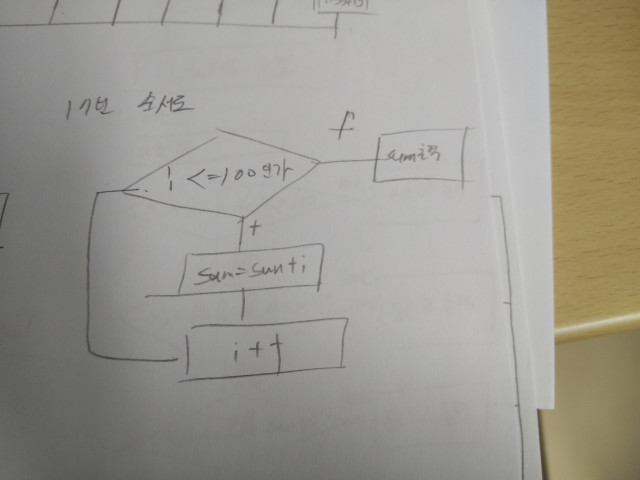 17번 순서도
f
i <=100인가
sum출력
t
sum=sum+i
i++